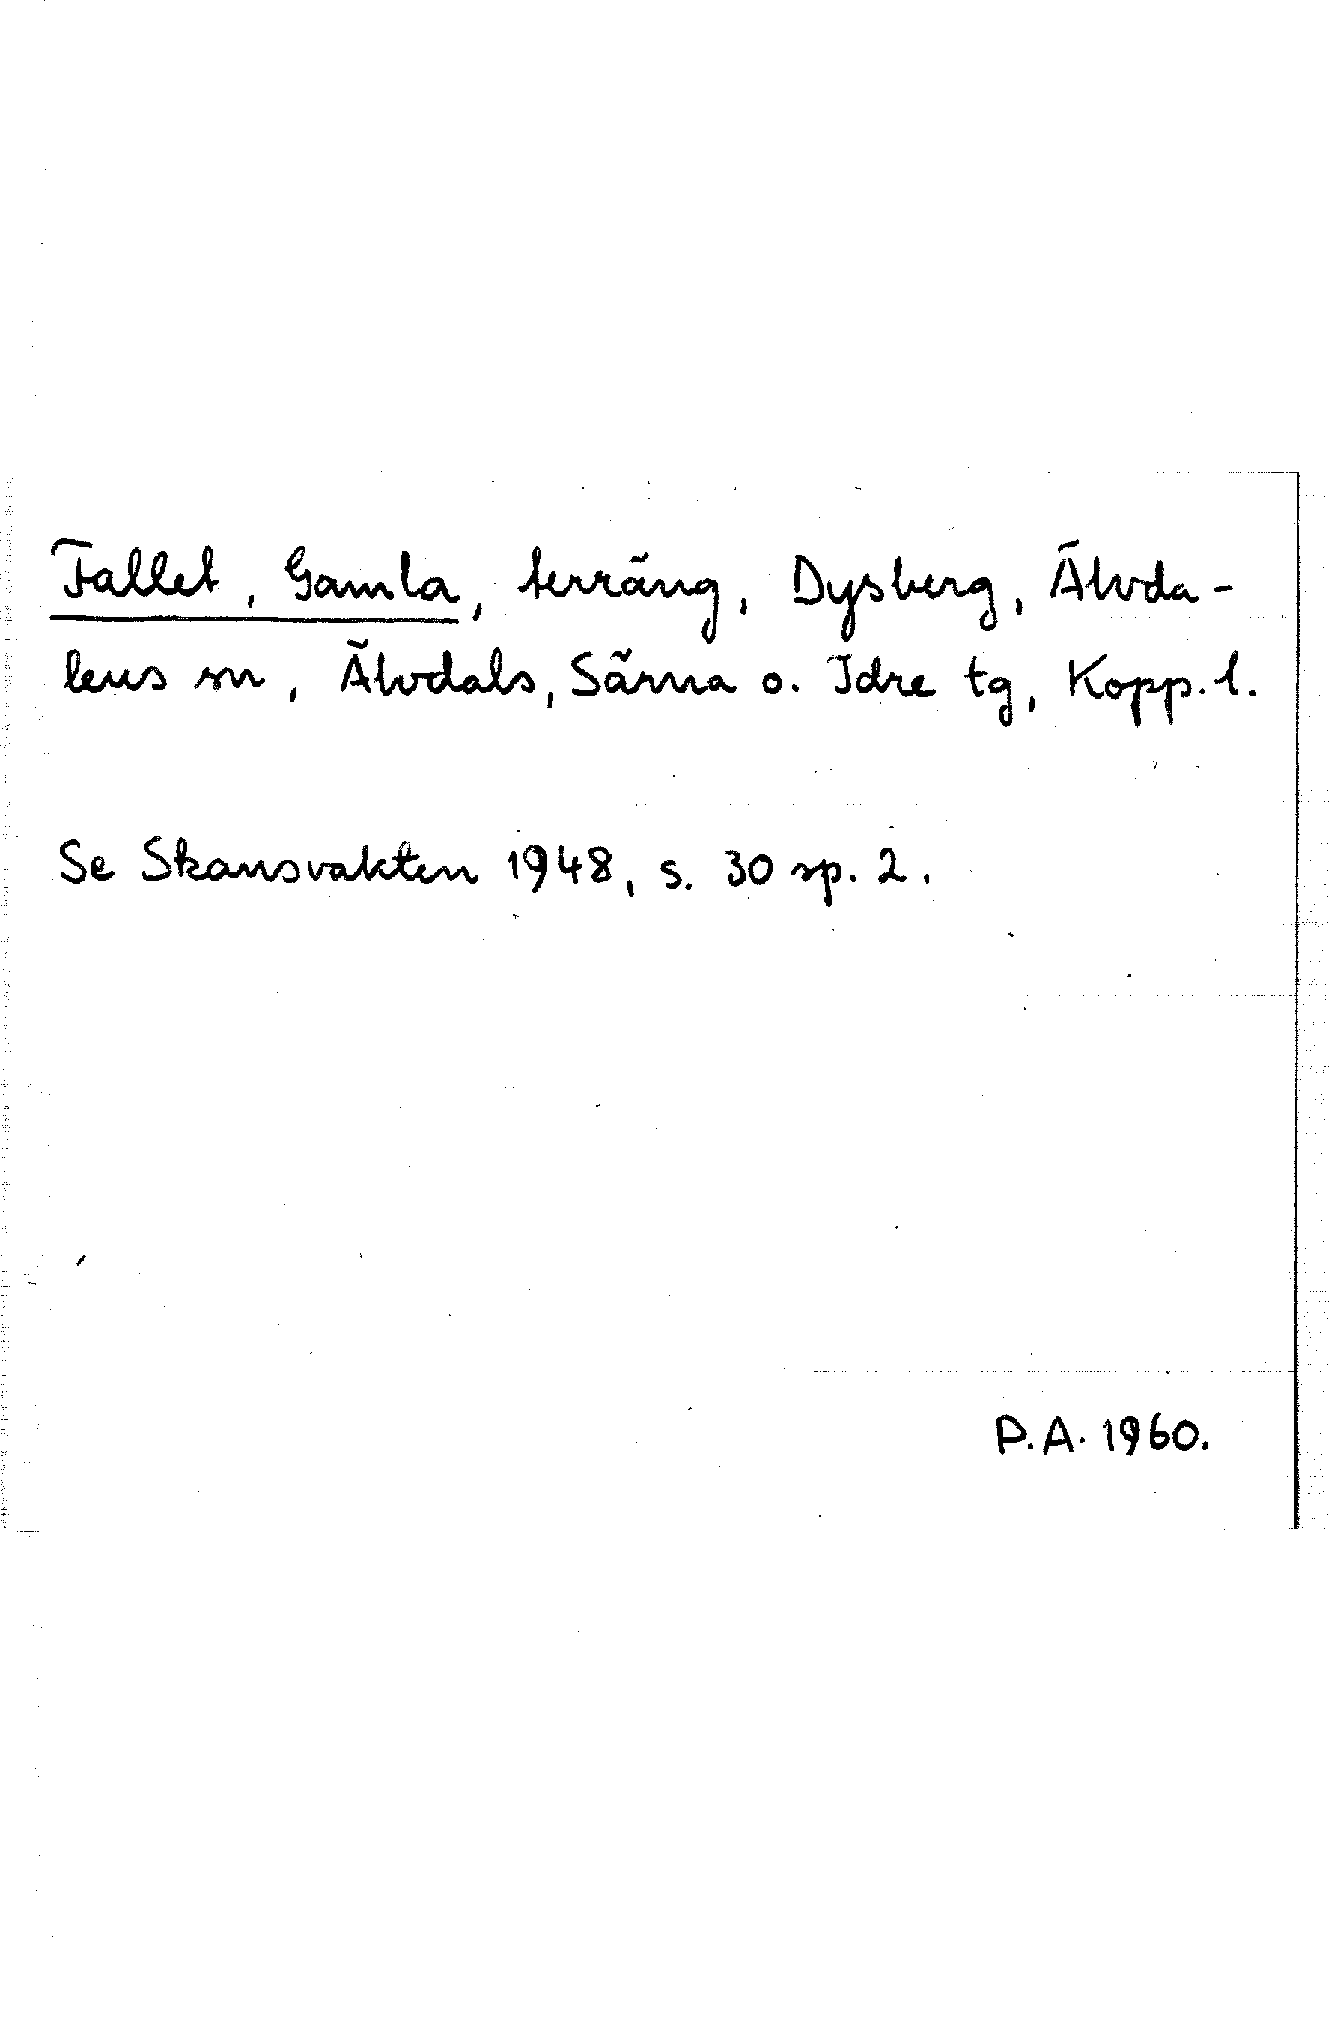 Fallet, Gamla, terräng, Dysberg, Älvda-
lens sn, Älvdals, Särna o. Idre tg, Kopp. l.
Se Skansvakten 1948, s. 30 sp. 2.
P.A. 1960.